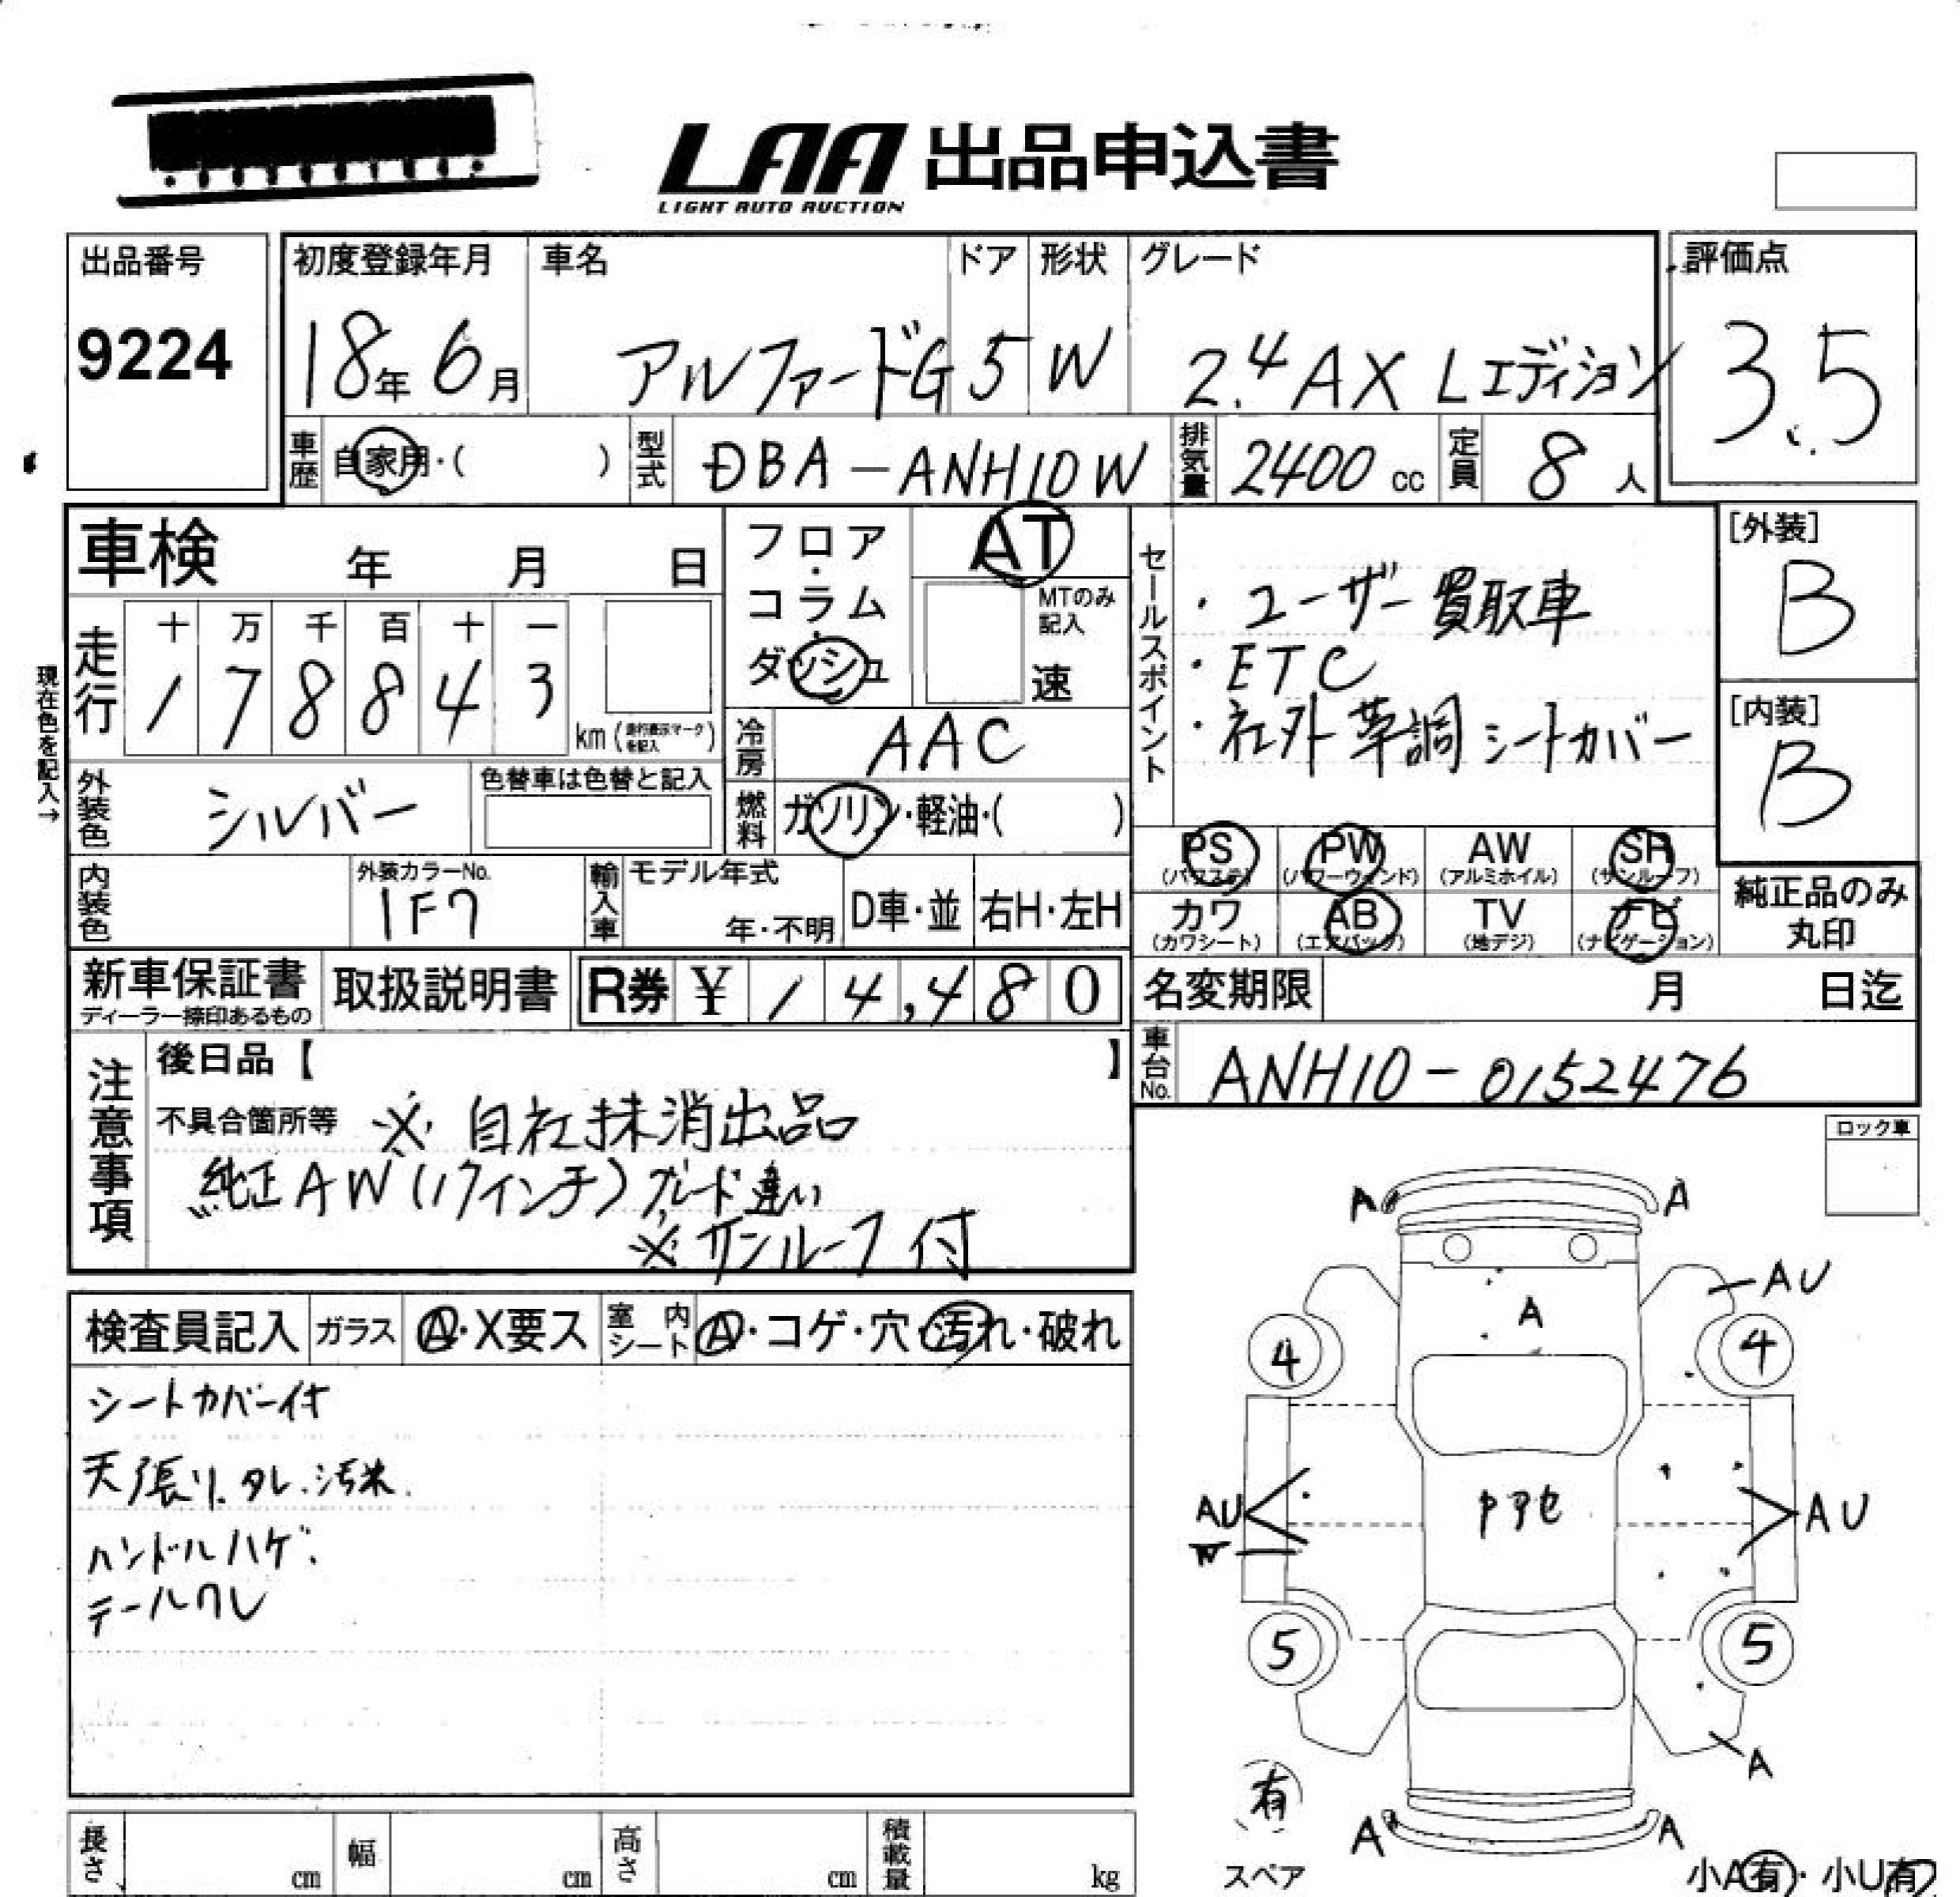 LAA 出品申込書
LIGHT AUTO AUCTION
出品番号
9224
初度登録年月 車名 ドア 形状 グレード 評価点
18年 6月 アルファードG 5 W 2.4 AX Lエディション 3.5
車歴 自家用・( ) 型式 DBA-ANH10W 排気量 2400 cc 定員 8 人
車検 年 月 日
フロア・コラム・ダッシュ
AT
MTのみ記入
速
セールスポイント
・ユーザー買取車
・ETC
・社外革調シートカバー
[外装]
B
[内装]
B
現在色を記入→
走行 十 万 千 百 十 一
1 7 8 8 4 3 km (走行表示マークを記入)
冷房 AAC
外装色 シルバー 色替車は色替と記入
燃料 ガソリン・軽油・( )
PS PW AW SR
(パワステ) (パワーウィンド) (アルミホイル) (サンルーフ)
カワ AB TV ナビ
(カワシート) (エアバック) (地デジ) (ナビゲーション)
純正品のみ
丸印
内装色 外装カラーNo. 1F7
輸入車 モデル年式 年・不明 D車・並 右H・左H
新車保証書 取扱説明書 R券 ¥ 14,480
ディーラー捺印あるもの
名変期限 月 日迄
車台No. ANH10-0152476
注意事項
後日品【 】
不具合箇所等 ※ 自社抹消出品
純正AW(17インチ)グレード違い
※サンルーフ付
ロック車
検査員記入 ガラス A・X要ス 室内シート A・コゲ・穴・汚れ・破れ
シートカバー付
天張り.タレ.汚れ.
ハンドルハゲ.
テールワレ
A A
AU
A
4 4
AU AU
W
5 5
A
A A
有
スペア
小A有・小U有
長さ cm 幅 cm 高さ cm 積載量 kg